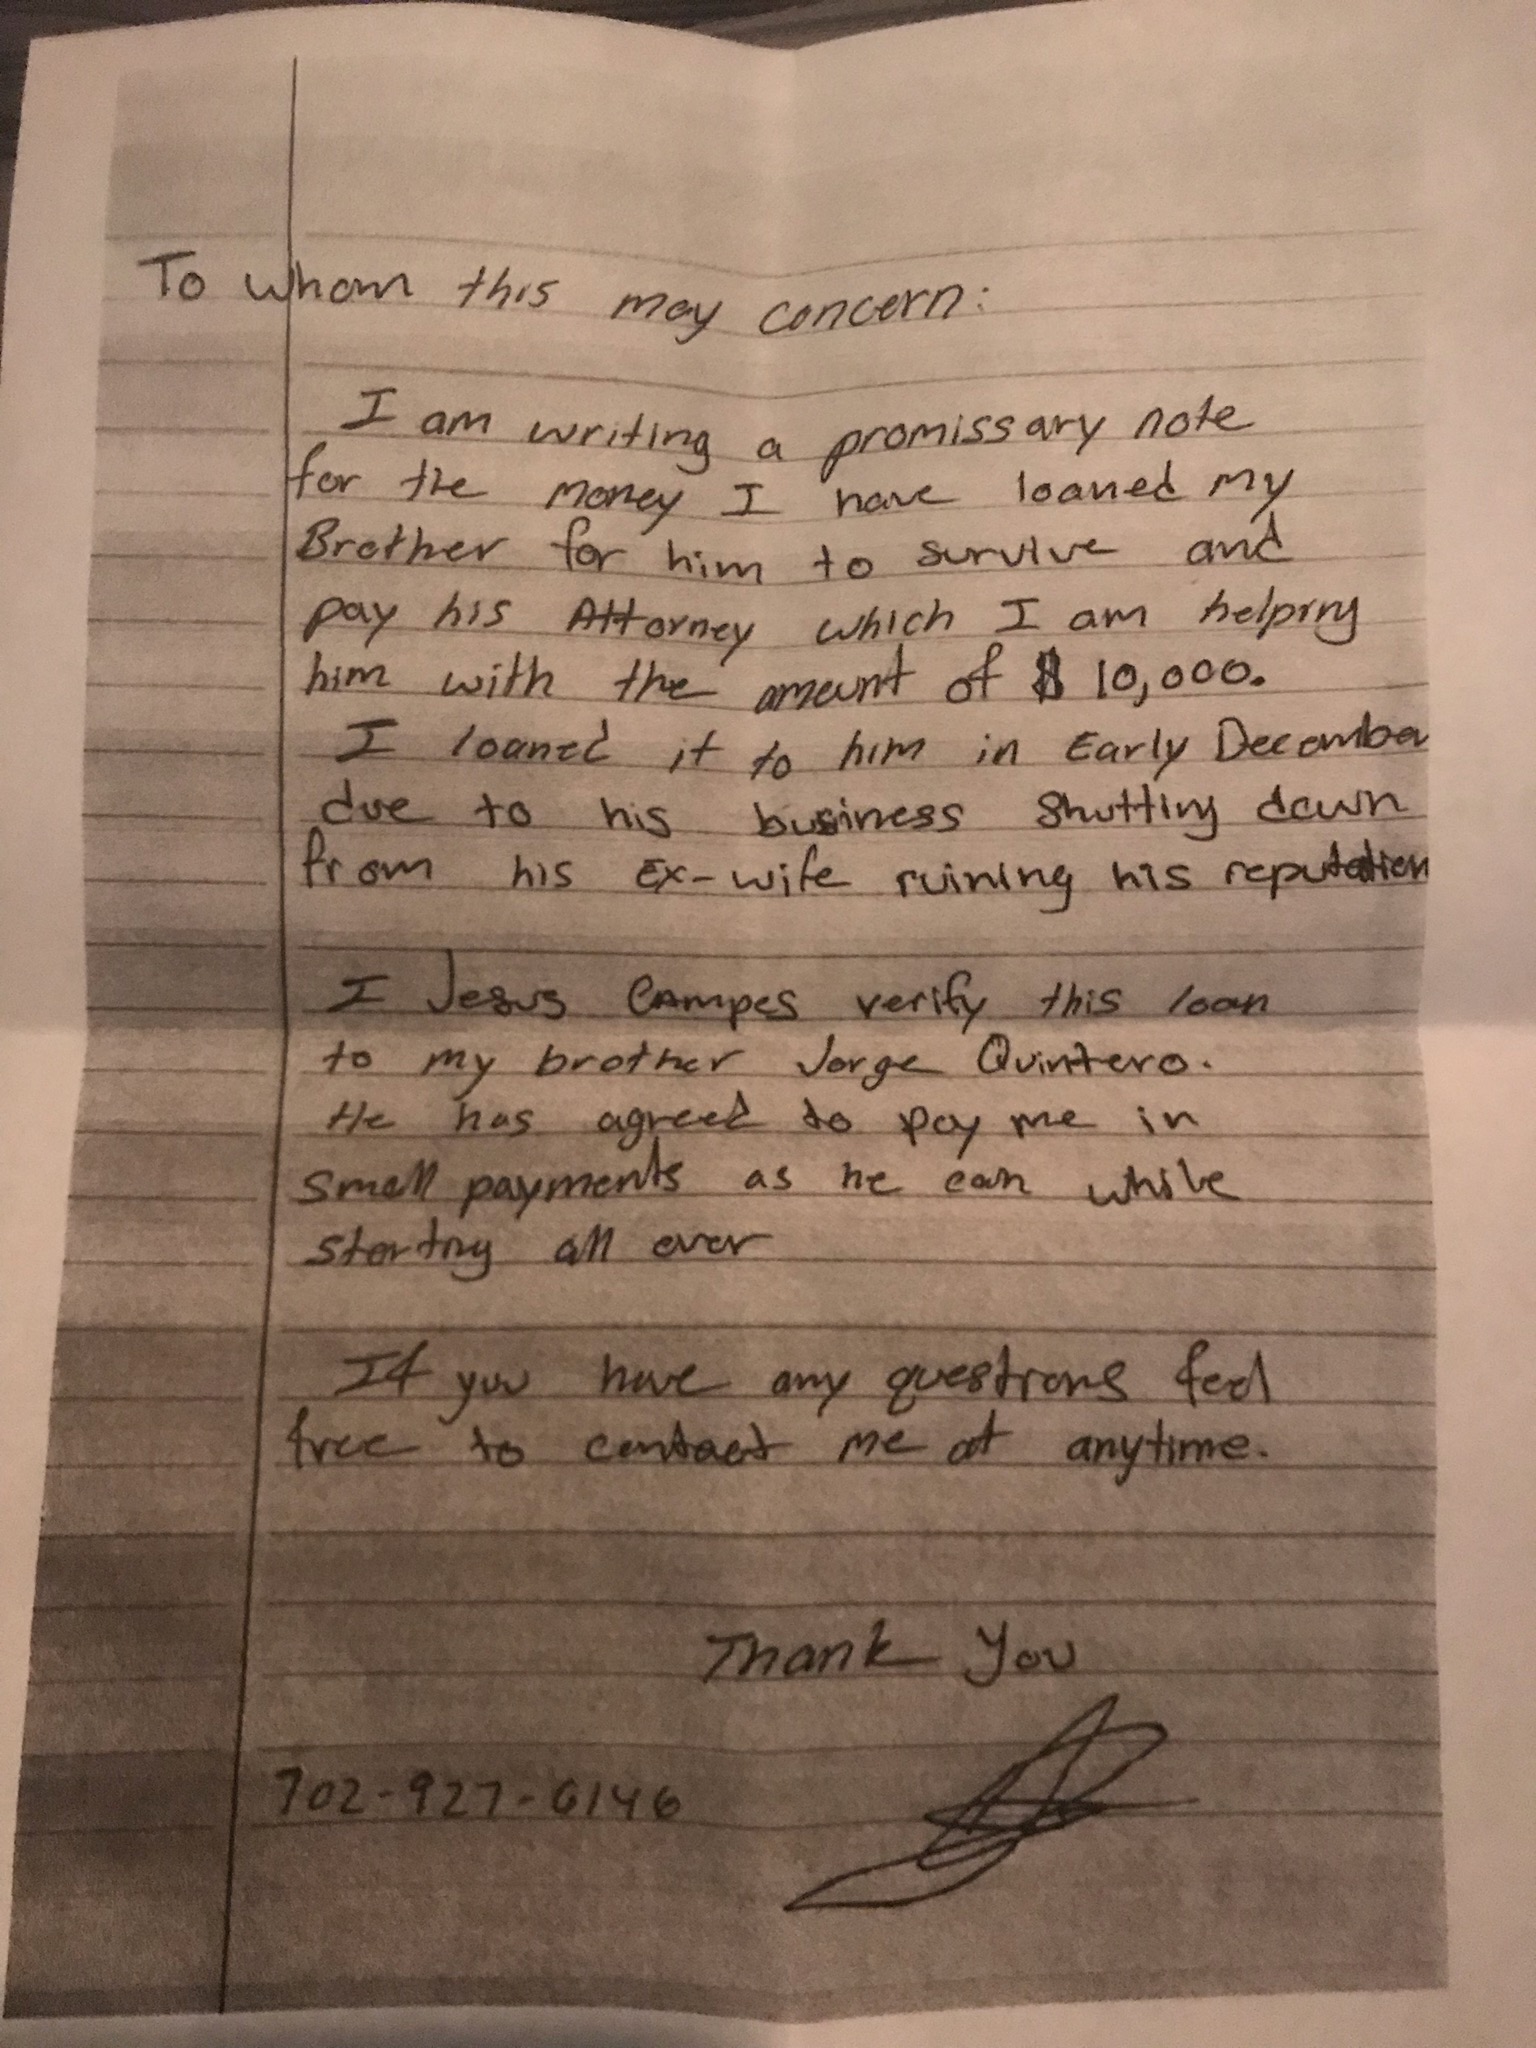 To whom this may concern:
I am writing a promissary note
for the money I have loaned my
Brother for him to survive and
pay his Attorney which I am helping
him with the amount of $ 10,000.
I loaned it to him in Early December
due to his business shutting down
from his Ex-wife ruining his reputation
I Jesus Campos verify this loan
to my brother Jorge Quintero.
He has agreed to pay me in
small payments as he can while
starting all over
If you have any questions feel
free to contact me at anytime.
Thank You
702-927-6146